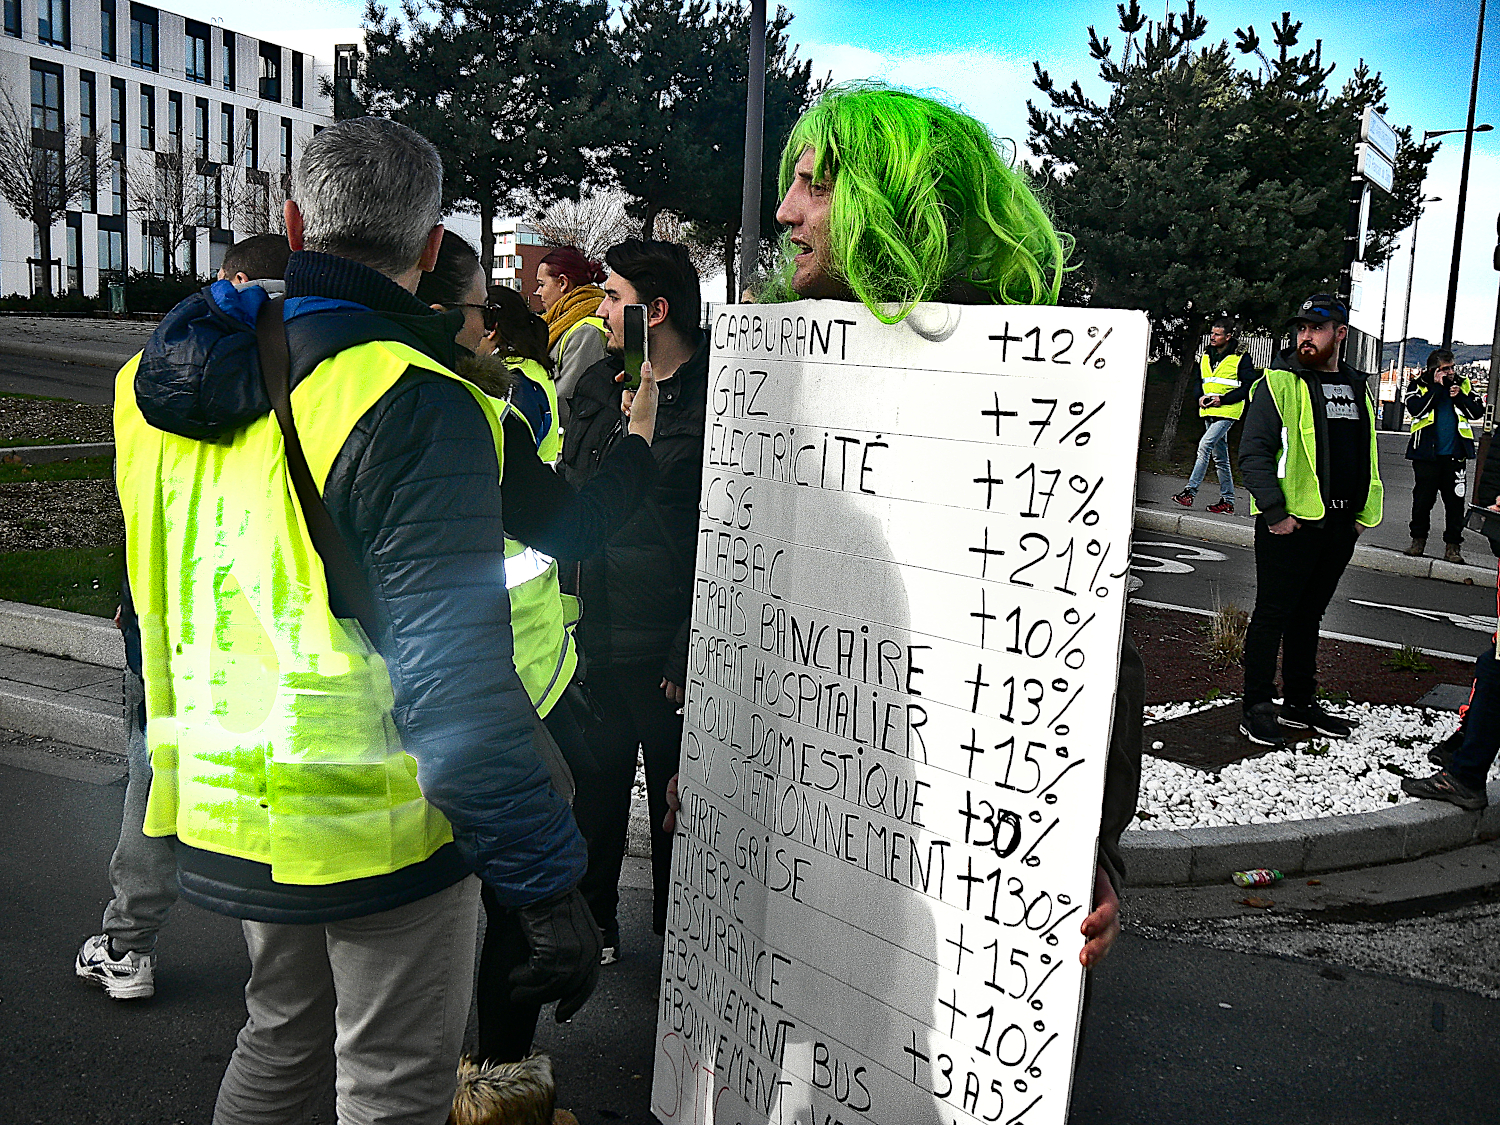 CARBURANT +12%
GAZ +7%
ÉLECTRICITÉ +17%
CSG +21%
TABAC +10%
FRAIS BANCAIRE +13%
FORFAIT HOSPITALIER +15%
FIOUL DOMESTIQUE +30%
PV STATIONNEMENT +130%
CARTE GRISE +15%
TIMBRE +10%
ASSURANCE +3À5%
ABONNEMENT BUS
ABONNEMENT
SMTC